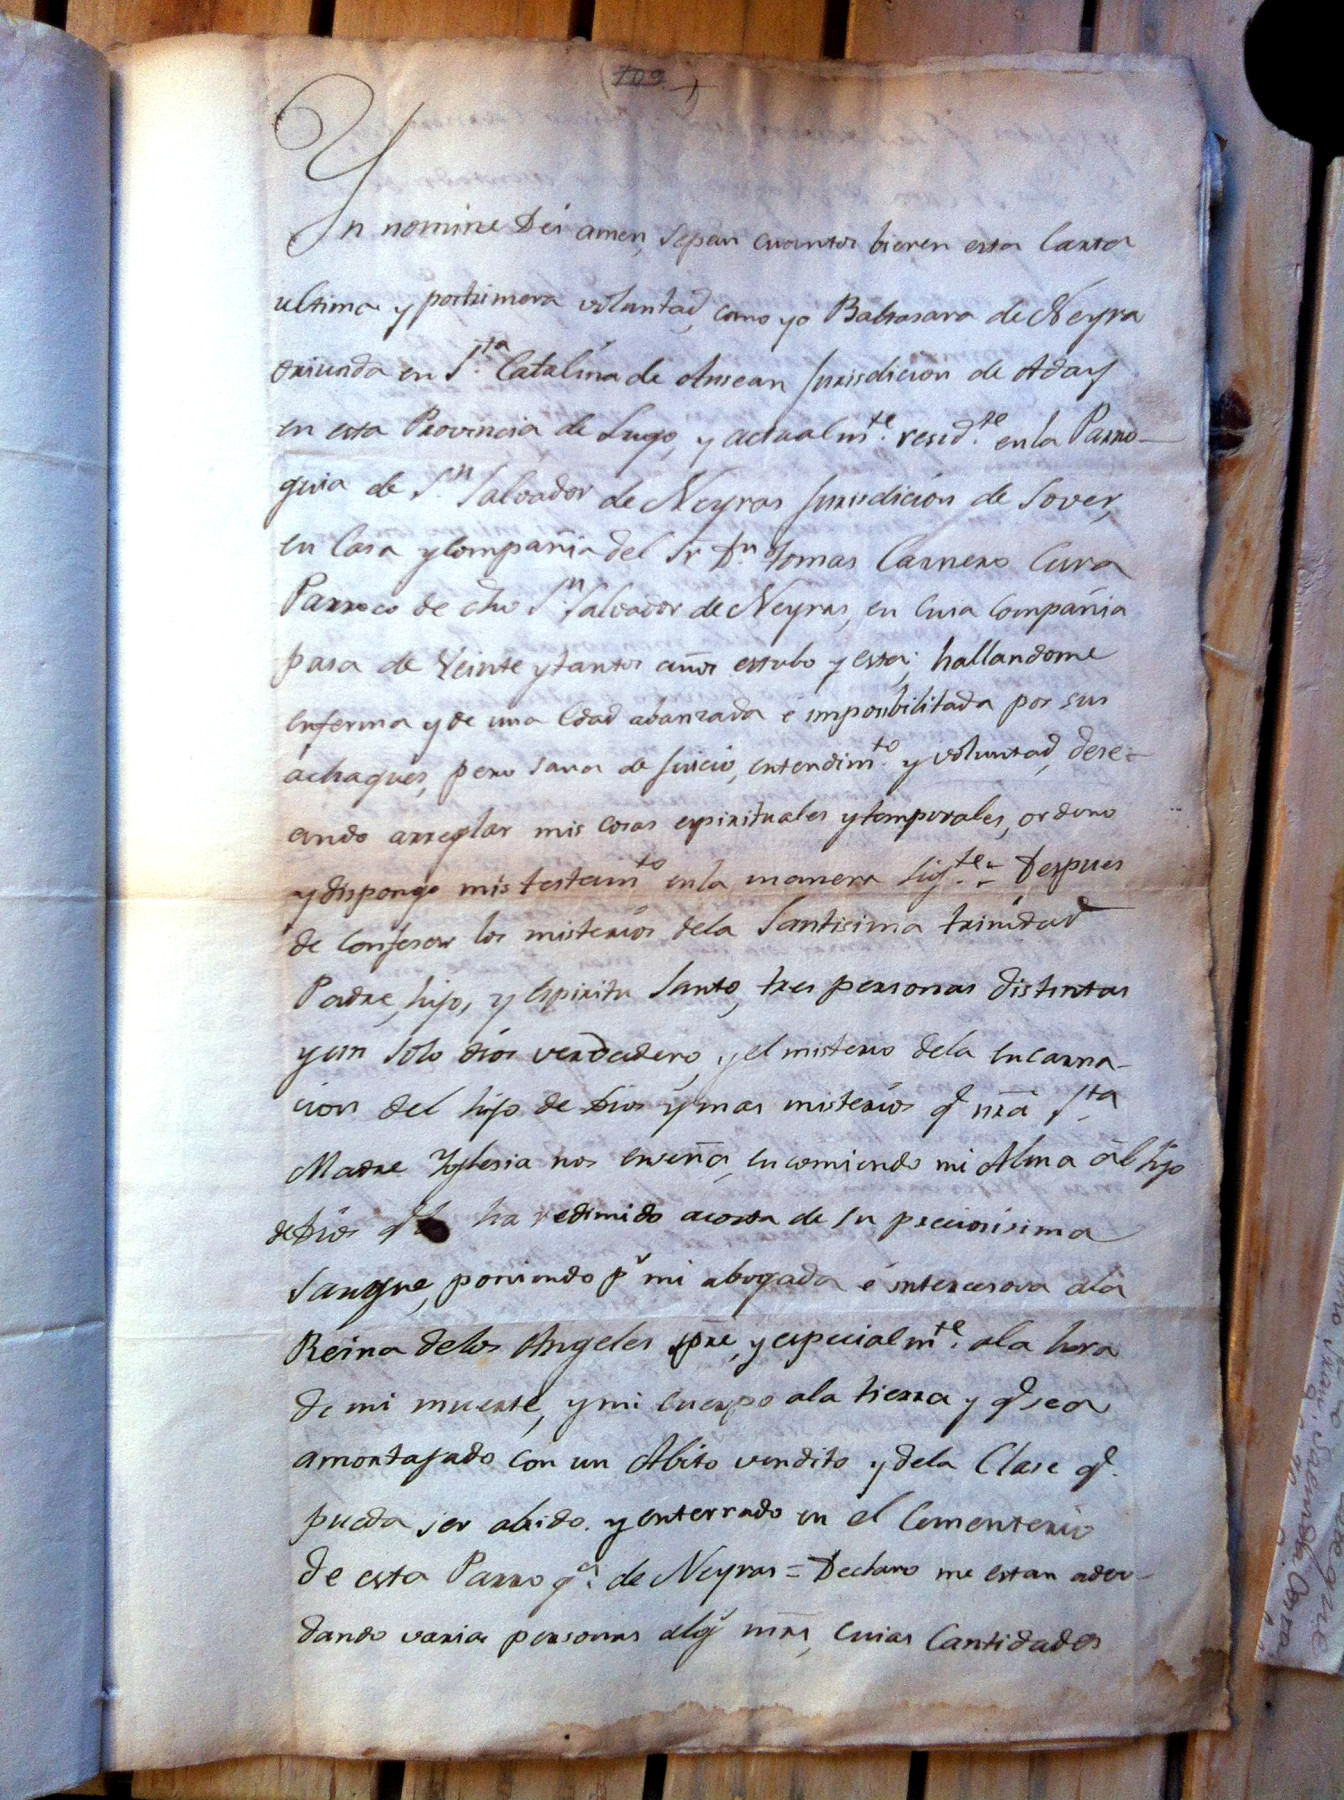 Yn nomine Dei amen, sepan cuantos bieren esta Carta
ultima y postrimera voluntad, como yo Baltasara de Neyra
oriunda en S.ta Catalina de Ansean Jurisdicion de Aday
en esta Provincia de Lugo, y actualm.te resid.te en la Parro-
quia de S.n Salvador de Neyras Jurisdicion de Sover,
en Casa y Compañia del Sr D.n Tomas Carnero Cura
Parroco de dho S.n Salvador de Neyras, en cuia Compañia
pasa de Veinte y tantos años estubo y esta; hallandome
enferma y de una Edad abanzada é imposibilitada por sus
áchaques, pero sana de Juicio, entendim.to y voluntad, dese-
ando arreglar mis cosas espirituales y temporales, ordeno
y dispongo mis testam.to en la manera sig.te = Despues
de Confesar los misterios dela Santisima trinidad
Padre, hijo, y Espiritu Santo, tres personas distintas
y un solo dios verdadero, y el misterio dela Encarna-
cion del hijo de Dios y mas misterios q.e nra S.ta
Madre Yglesia nos enseña, encomiendo mi Alma al hijo
de Dios q.e ha redimido acosta de su preciosisima
Sangre, poniendo p.r mi abogada é intercesora ala
Reina delos Angeles spre, y especialm.te ala hora
de mi muerte, y mi cuerpo ala tierra y q.e sea
amortajado con un Abito vendito y dela Clase q.e
pueda ser abido. y enterrado en el Cementerio
de esta Parroq.a de Neyras = Declaro me estan adeu-
dando varias personas alg.s mrs, cuias Cantidades